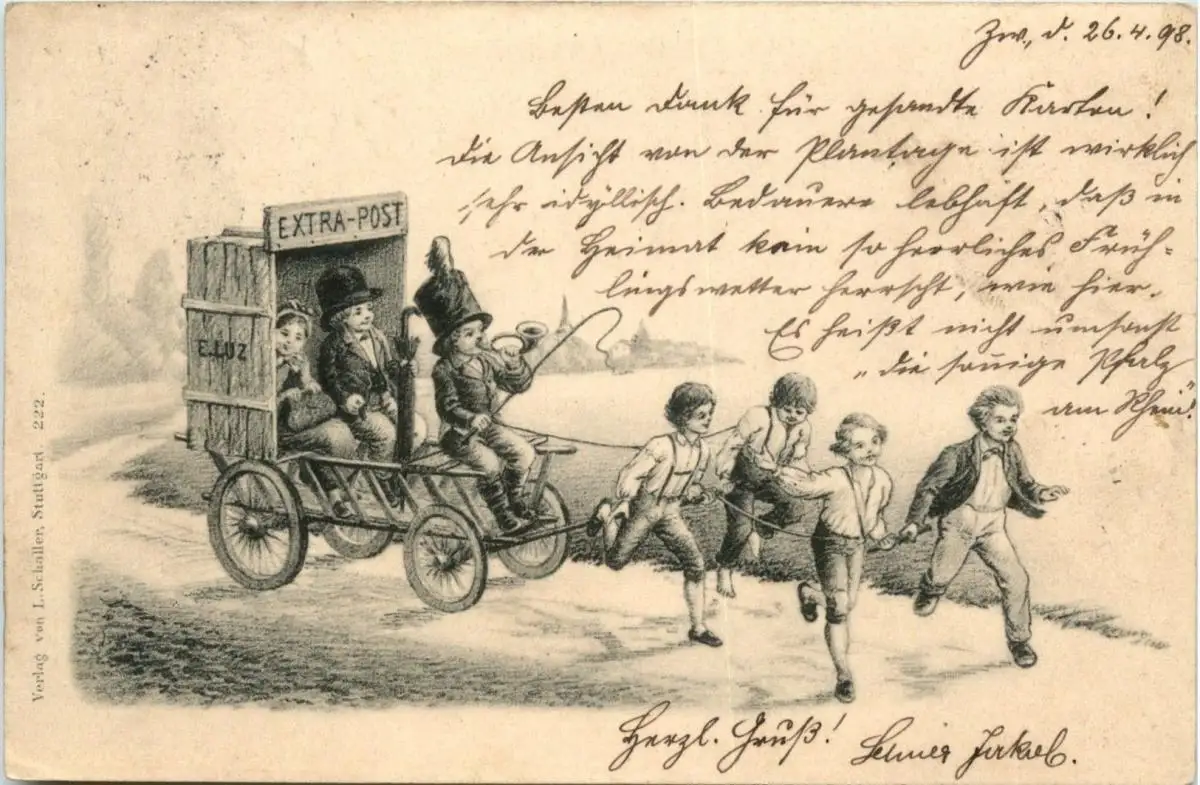 Zw., d. 26.4.98.
Besten Dank für gesandte Karten!
Die Ansicht von der Plantage ist wirklich
sehr idyllisch. Bedauere lebhaft, daß in
der Heimat kein so herrliches Früh-
lingswetter herrscht, wie hier.
Es heißt nicht umsonst
„die sonige Pfalz
am Rhein!“
EXTRA-POST
E. LUZ
Verlag von L. Schaller, Stuttgart. 222.
Herzl. Gruß!
Jakob.